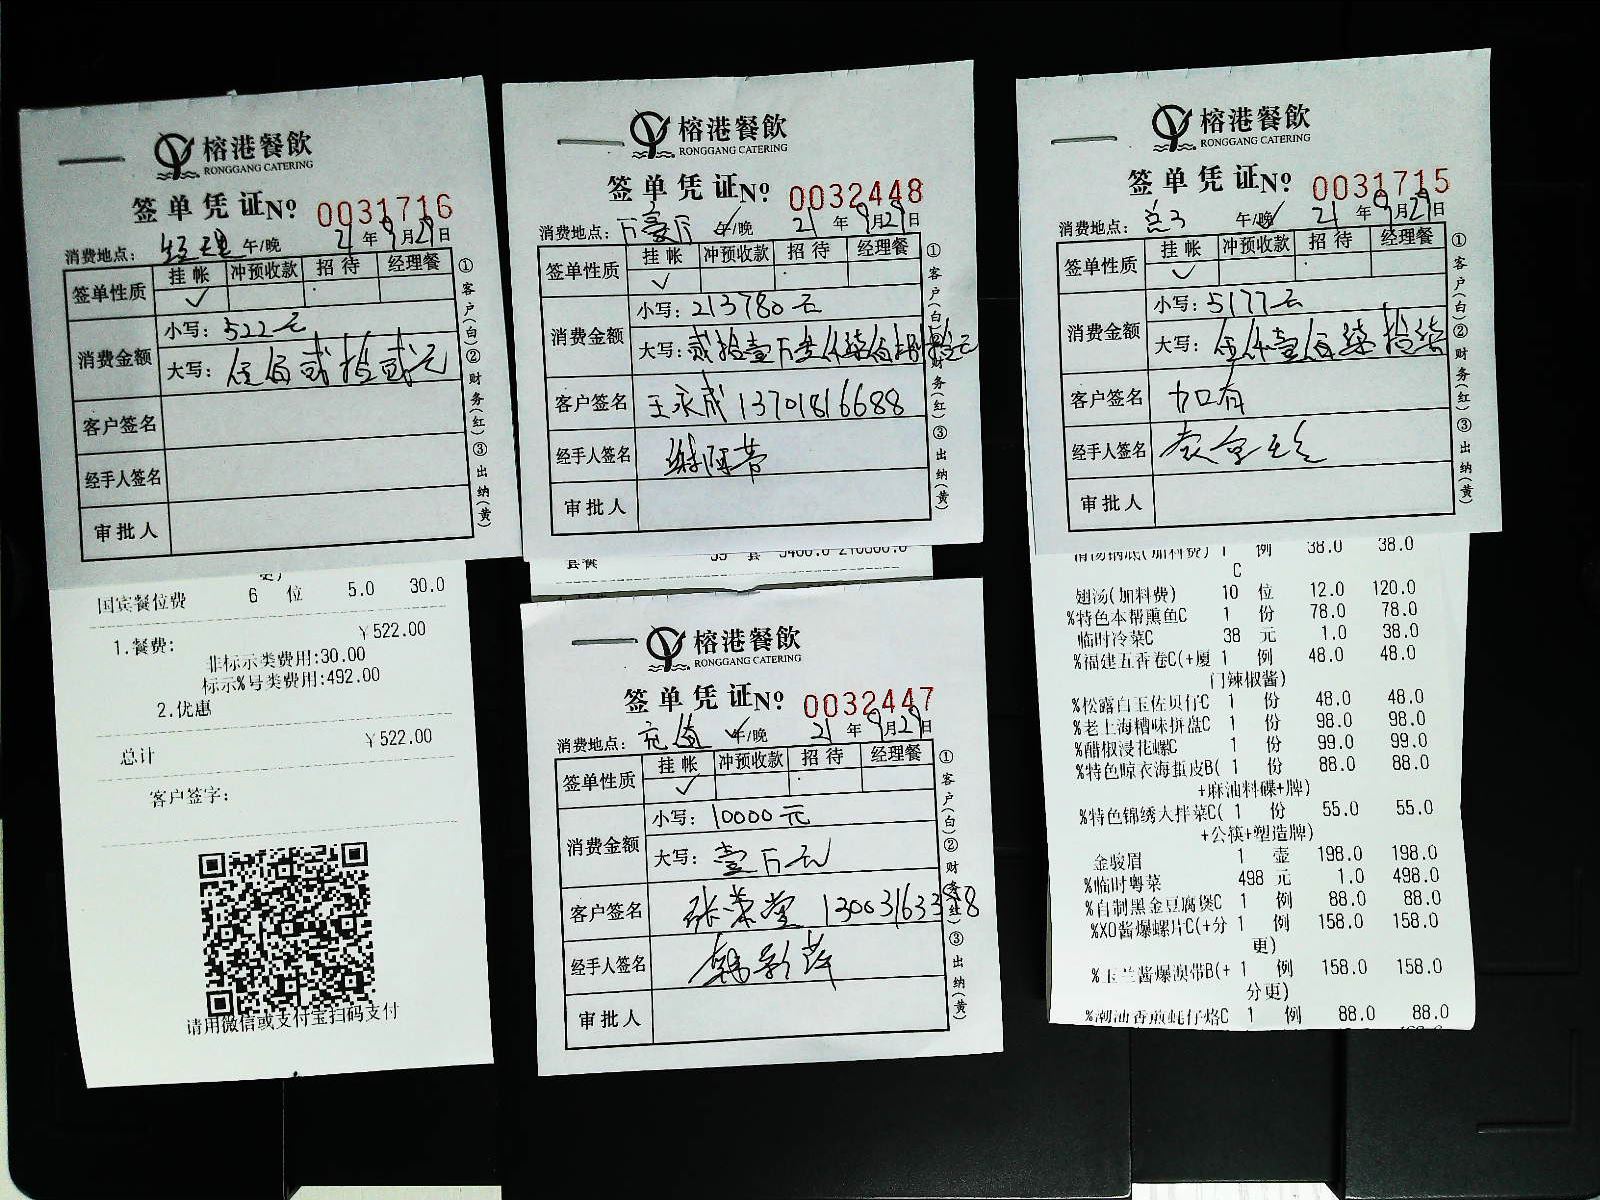 榕港餐飲
RONGGANG CATERING
签单凭证 № 0031716
消费地点：经理 午/晚 21年9月29日
签单性质 挂帐 冲预收款 招待 经理餐
✓
消费金额 小写：522元
大写：伍佰贰拾贰元
客户签名
经手人签名
审批人
①客户(白)②财务(红)③出纳(黄)
国宾餐位费 6 位 5.0 30.0
1.餐费: ￥522.00
非标示类费用:30.00
标示%号类费用:492.00
2.优惠
总计 ￥522.00
客户签字:
请用微信或支付宝扫码支付
榕港餐飲
RONGGANG CATERING
签单凭证 № 0032448
消费地点：万豪厅 午/晚 21年9月29日
签单性质 挂帐 冲预收款 招待 经理餐
✓
消费金额 小写：213780元
大写：贰拾壹万叁仟柒佰捌拾元
客户签名 王永成 13701816688
经手人签名
审批人
①客户(白)②财务(红)③出纳(黄)
榕港餐飲
RONGGANG CATERING
签单凭证 № 0032447
消费地点：充值 午/晚 21年9月29日
签单性质 挂帐 冲预收款 招待 经理餐
✓
消费金额 小写：10000元
大写：壹万元
客户签名 张荣堂
经手人签名
审批人
①客户(白)②财务(红)③出纳(黄)
榕港餐飲
RONGGANG CATERING
签单凭证 № 0031715
消费地点： 午/晚 21年9月29日
签单性质 挂帐 冲预收款 招待 经理餐
✓
消费金额 小写：5177元
大写：伍仟壹佰柒拾柒
客户签名 加有
经手人签名
审批人
①客户(白)②财务(红)③出纳(黄)
清汤锅底(加料费) 1 例 38.0 38.0
C
翅汤(加料费) 10 位 12.0 120.0
%特色本帮熏鱼C 1 份 78.0 78.0
临时冷菜C 38 元 1.0 38.0
%福建五香卷C(+厦 1 例 48.0 48.0
门辣椒酱)
%松露白玉佐贝仔C 1 份 48.0 48.0
%老上海糟味拼盘C 1 份 98.0 98.0
%醋椒浸花螺C 1 份 99.0 99.0
%特色晾衣海蜇皮B( 1 份 88.0 88.0
+麻油料碟+牌)
%特色锦绣大拌菜C( 1 份 55.0 55.0
+公筷+塑造牌)
金骏眉 1 壶 198.0 198.0
%临时粤菜 498 元 1.0 498.0
%自制黑金豆腐煲C 1 例 88.0 88.0
%XO酱爆螺片C(+分 1 例 158.0 158.0
更)
%玉兰酱爆澳带B(+ 1 例 158.0 158.0
分更)
%潮油香煎蚝仔烙C 1 例 88.0 88.0